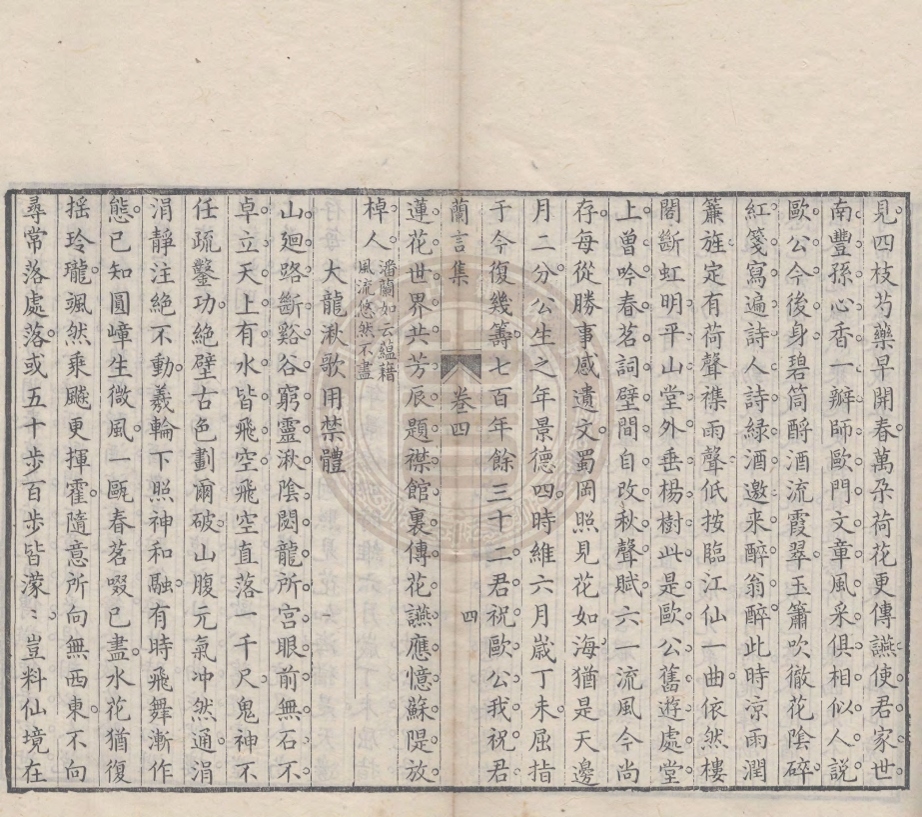 見四枝芍藥早開春萬朶荷花更傳讌使君家世
南豐孫心香一瓣師歐門文章風采俱相似人說
歐公今後身碧筒酹酒流霞翠玉簫吹徹花陰碎
紅箋寫遍詩人詩緑酒邀来醉翁醉此時凉雨潤
簾旌定有荷聲襍雨聲低按臨江仙一曲依然樓
閣斷虹明平山堂外垂楊樹此是歐公舊遊處堂
上曽吟春茗詞壁間自改秋聲賦六一流風今尚
存每從勝事感遺文蜀岡照見花如海猶是天邊
月二分公生之年景德四時維六月歳丁未屈指
于今復幾籌七百年餘三十二君祝歐公我祝君
蘭言集 卷四 四
蓮花世界共芳辰題襟館裏傳花讌應憶蘇隄放
棹人 潘蘭如云藴藉風流悠然不盡
大龍湫歌用禁體
山廻路斷谿谷窮靈湫陰閟龍所宮眼前無石不
卓立天上有水皆飛空飛空直落一千尺鬼神不
任疏鑿功絶壁古色劃爾破山腹元氣冲然通涓
涓靜注絶不動羲輪下照神和融有時飛舞漸作
態已知圓嶂生微風一甌春茗啜已盡水花猶復
揺玲瓏颯然乘飈更揮霍隨意所向無西東不向
尋常落處落或五十步百步皆濛〻豈料仙境在